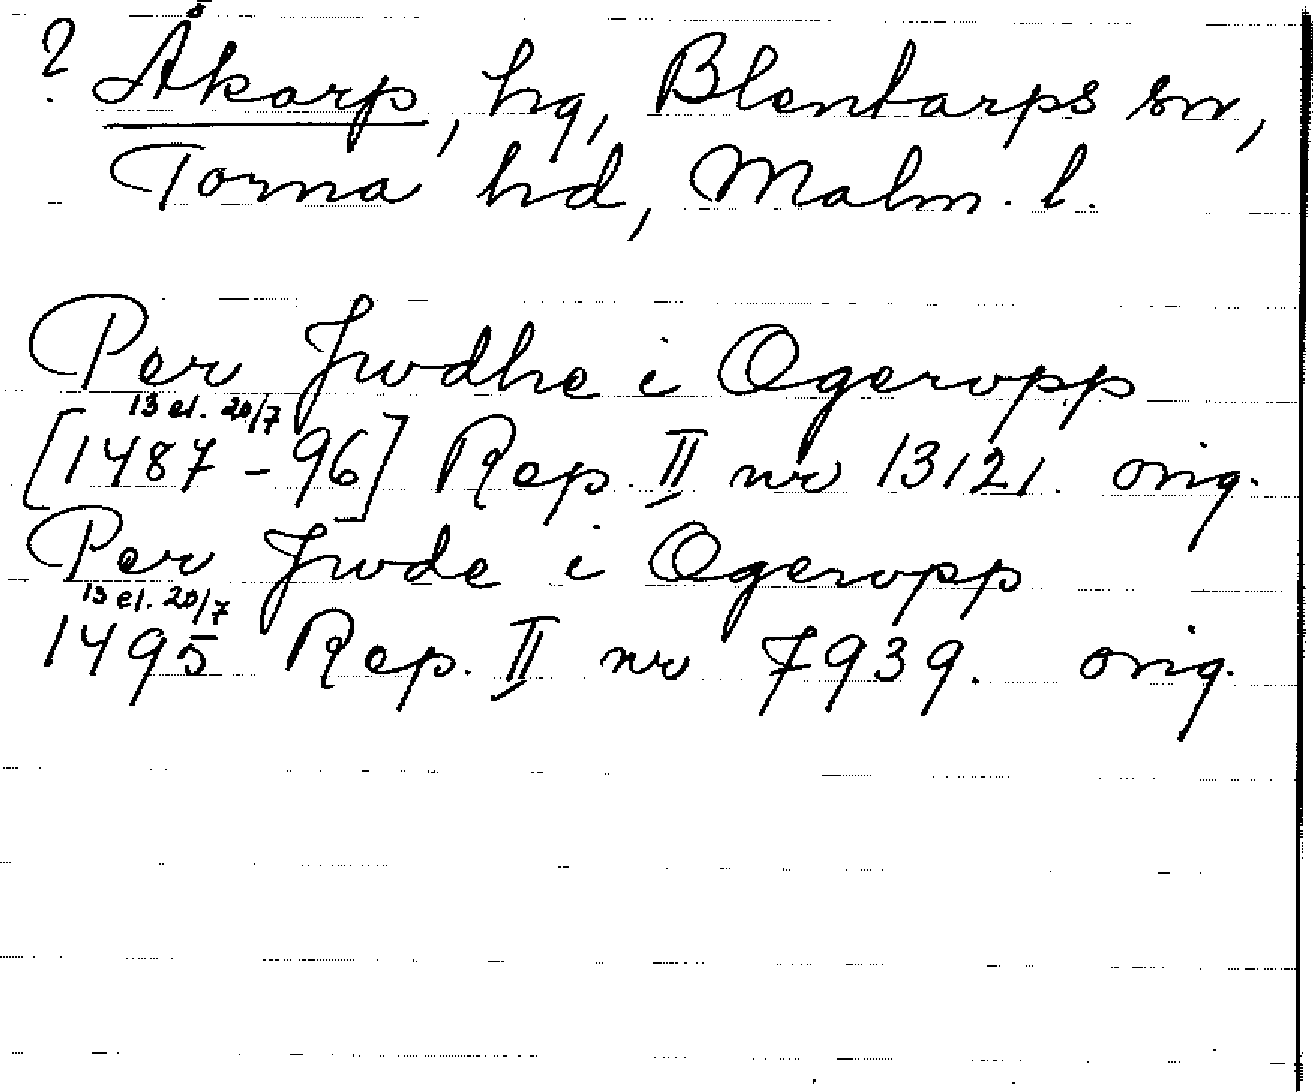 ? Åkarp, hg, Blentarps sn,
Torna hd, Malm. l.
Per Jwdhe i Ogeropp
13 el. 20/7
[1487-96] Rep. II nr 13121. orig.
Per Jwde i Ogeropp
13 el. 20/7
1495 Rep. II nr 7939. orig.